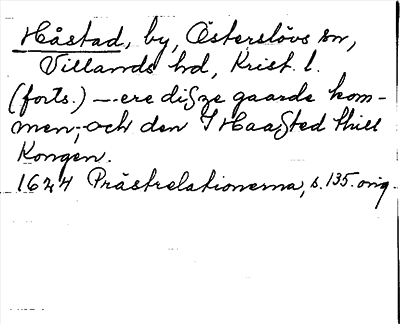 Håstad, by, Österslövs sn,
Villands hd, Krist. l.
(forts.) — ere disze gaarde kom-
men, och den I Haasted thill
Kongen.
1624 Prästrelationerna, s. 135. orig.